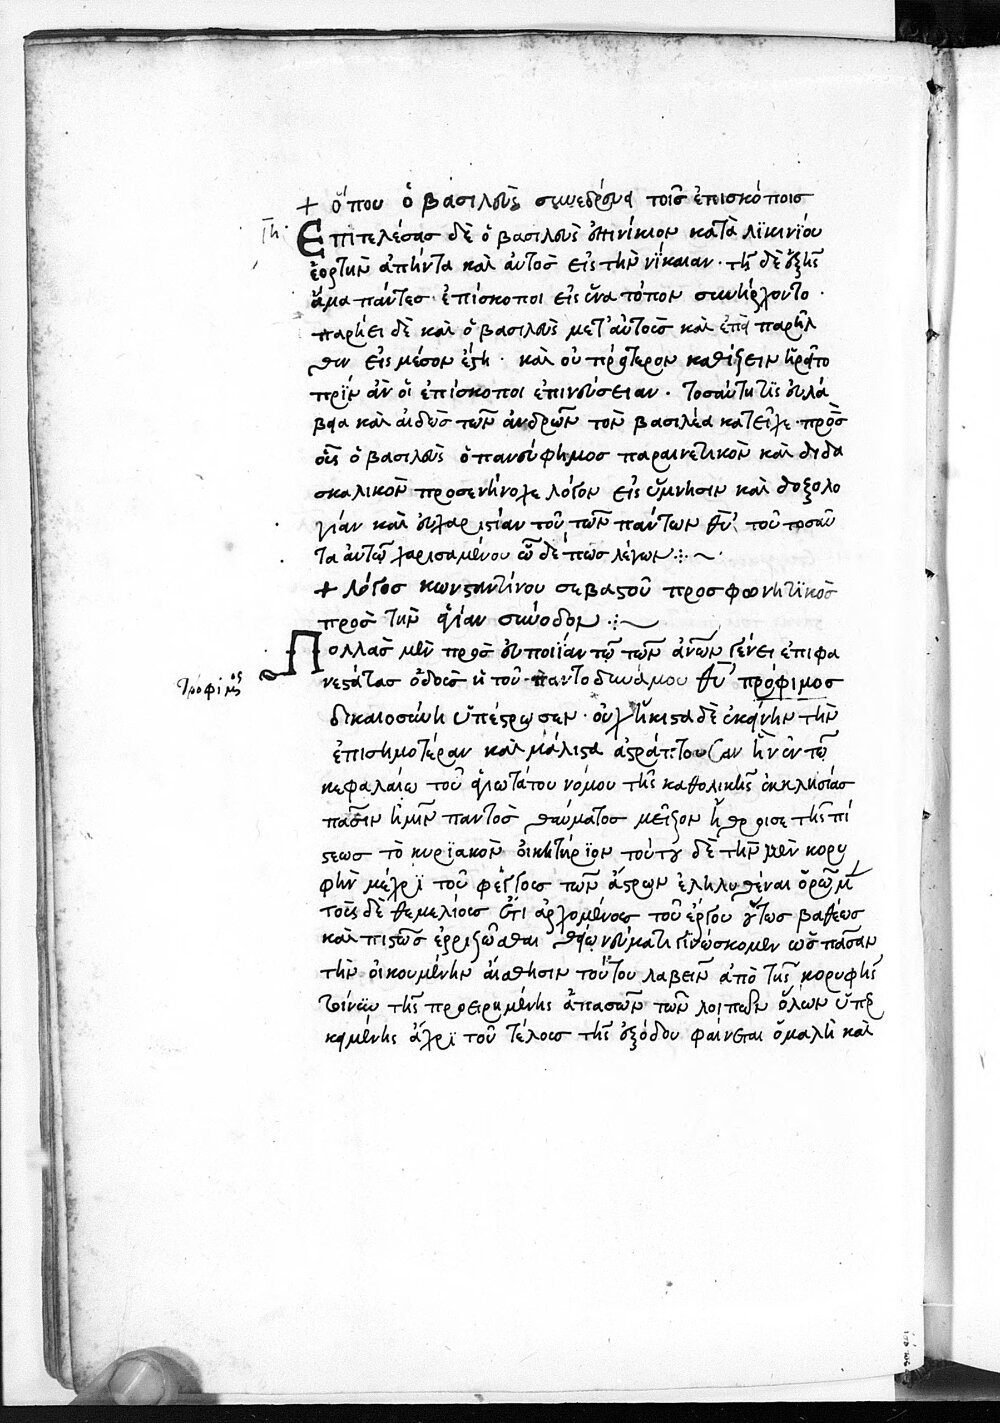 + ὅπου ὁ βασιλεὺς συνεδρεύει τοῖς ἐπισκόποις
Ἐπιτελέσας δὲ ὁ βασιλεὺς ἐπινίκιον κατὰ λικινίου
ἑορτὴν ἀπήντα καὶ αὐτὸς εἰς τὴν νίκαιαν · τῆ δὲ ἑξῆς
ἅμα πάντες ἐπίσκοποι εἰς ἕνα τόπον συνήρχοντο ·
παρήει δὲ καὶ ὁ βασιλεὺς μετ' αὐτοὺς καὶ ἐπεὶ παρῆλ
θεν εἰς μέσον ἔστη · καὶ οὐ πρότερον καθίζειν ἡρεῖτο
πρὶν ἂν οἱ ἐπίσκοποι ἐπινεύσειαν · τοσαύτη τις εὐλά
βεια καὶ αἰδὼς τῶν ἀνδρῶν τὸν βασιλέα κατεῖχε · πρὸς
οὓς ὁ βασιλεὺς ὁ πανεύφημος παραινετικὸν καὶ διδα
σκαλικὸν προσενήνοχε λόγον εἰς ὕμνησιν καὶ δοξολο
γίαν καὶ εὐχαριστίαν τοῦ τῶν πάντων θυ τοῦ τοσαῦ
τα αὐτῶ χαρισαμένου ὧδέ πως λέγων
+ λόγος κωνσταντίνου σεβαστοῦ προσφωνητικὸς
πρὸς τὴν ἁγίαν σύνοδον
Πολλὰς μὲν πρὸς εὐποιίαν τῶ τῶν ἀνων γένει ἐπιφα
νεστάτας ὁδοὺς ἡ τοῦ παντοδυνάμου θυ πρόφιμος
δικαιοσύνη ὑπέστρωσεν · οὐχ ἥκιστα δὲ ἐκείνην τὴν
ἐπισημοτέραν καὶ μάλιστα ἀστράπτουσαν ἣν ἐν τῶ
κεφαλαίω τοῦ ἁγιωτάτου νόμου τῆς καθολικῆς ἐκκλησίας
πᾶσιν ἡμῖν παντὸς θαύματος μεῖζον ἥδρασε τῆς πί
στεως τὸ κυριακὸν οἰκητήριον τούτου δὲ τὴν μὲν κορυ
φὴν μέχρι τοῦ φέγγους τῶν ἄστρων ἐληλυθέναι ὁρῶμεν
τοὺς δὲ θεμελίους ἔτι ἀρχομένους τοῦ ἔργου οὕτως βαθέως
καὶ πιστῶς ἐρριζῶσθαι θείω νεύματι γινώσκομεν ὡς πᾶσαν
τὴν οἰκουμένην αἴσθησιν τούτου λαβεῖν ἀπὸ τῆς κορυφῆς
τῆς προειρημένης ἁπασῶν τῶν λοιπῶν ὅλων ὑπερ
κειμένης ἄχρι τοῦ τέλους τῆς ἐξόδου φαίνεται ὁμαλὴ καὶ